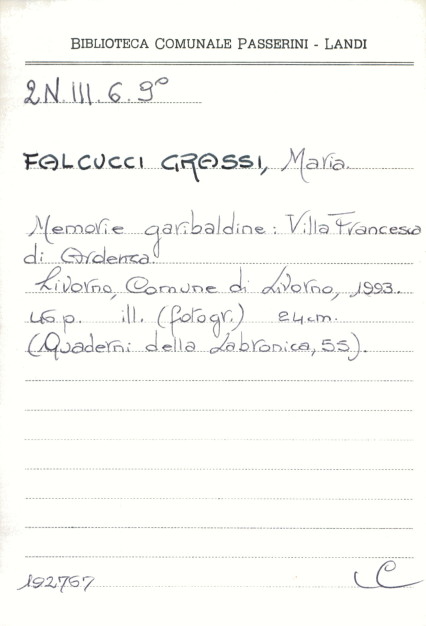 BIBLIOTECA COMUNALE PASSERINI - LANDI
2N.III.6.9°
FALCUCCI GRASSI, Maria.
Memorie garibaldine: Villa Francesca
di Ardenza.
Livorno, Comune di Livorno, 1993.
46 p. ill. (fotogr.) 24cm.
(Quaderni della Labronica, 55).
192767
C